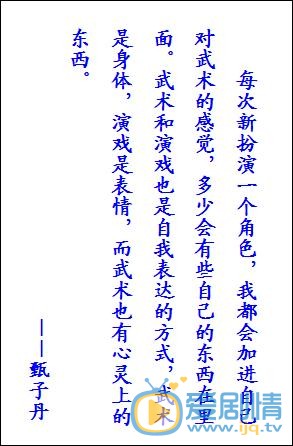 每次新扮演一个角色，我都会加进自己
对武术的感觉，多少会有些自己的东西在里
面。武术和演戏也是自我表达的方式，武术
是身体，演戏是表情，而武术也有心灵上的
东西。
——甄子丹
爱剧情
www.ijq.tv